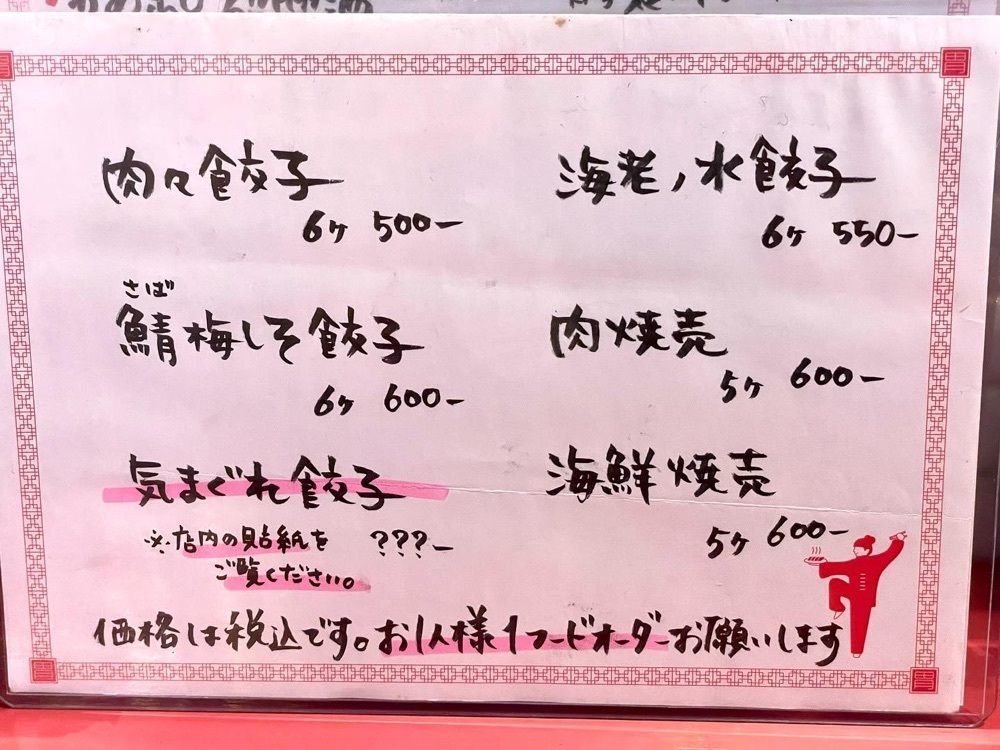 肉々餃子
6ケ 500-
海老ノ水餃子
6ケ 550-
さば
鯖梅しそ餃子
6ケ 600-
肉焼売
5ケ 600-
気まぐれ餃子
※店内の貼紙を ???-
ご覧ください。
海鮮焼売
5ケ 600-
価格は税込です。お1人様1フードオーダーお願いします